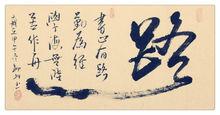 路
書山有路
勤為徑
學海無涯
苦作舟